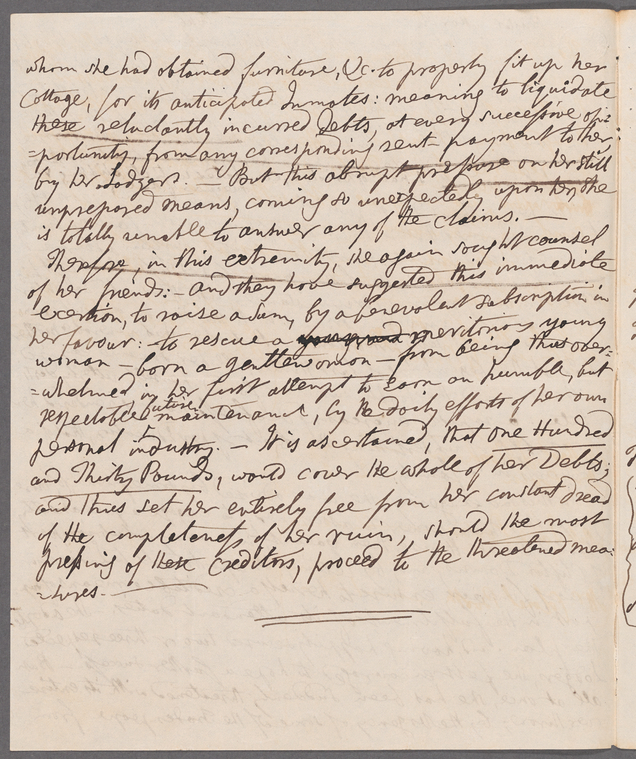 whom she had obtained furniture, &c. to properly fit up her
Cottage, for its anticipated Inmates: meaning to liquidate
these reluctantly incurred Debts, at every successive op=
=portunity, from any corresponding rent payment to her
by her Lodgers. — But this abrupt pressure on her still
unprepared means, coming so unexpectedly upon her, she
is totally unable to answer any of the claims. —
Therefore, in this extremity, she again sought counsel
of her friends: — and they have suggested this immediate
exertion, to raise a sum, by a benevolent subscription in
her favour: — to rescue a meritorious young
woman — born a gentlewoman — from being thus over=
=whelmed in her first attempt to earn an humble, but
respectable future maintenance, by the daily efforts of her own
personal industry. — It is ascertained, that One Hundred
and Thirty Pounds, would cover the whole of her Debts;
and thus set her entirely free from her constant dread
of the completeness of her ruin, should the most
pressing of these Creditors, proceed to the threatened mea=
=sures. —